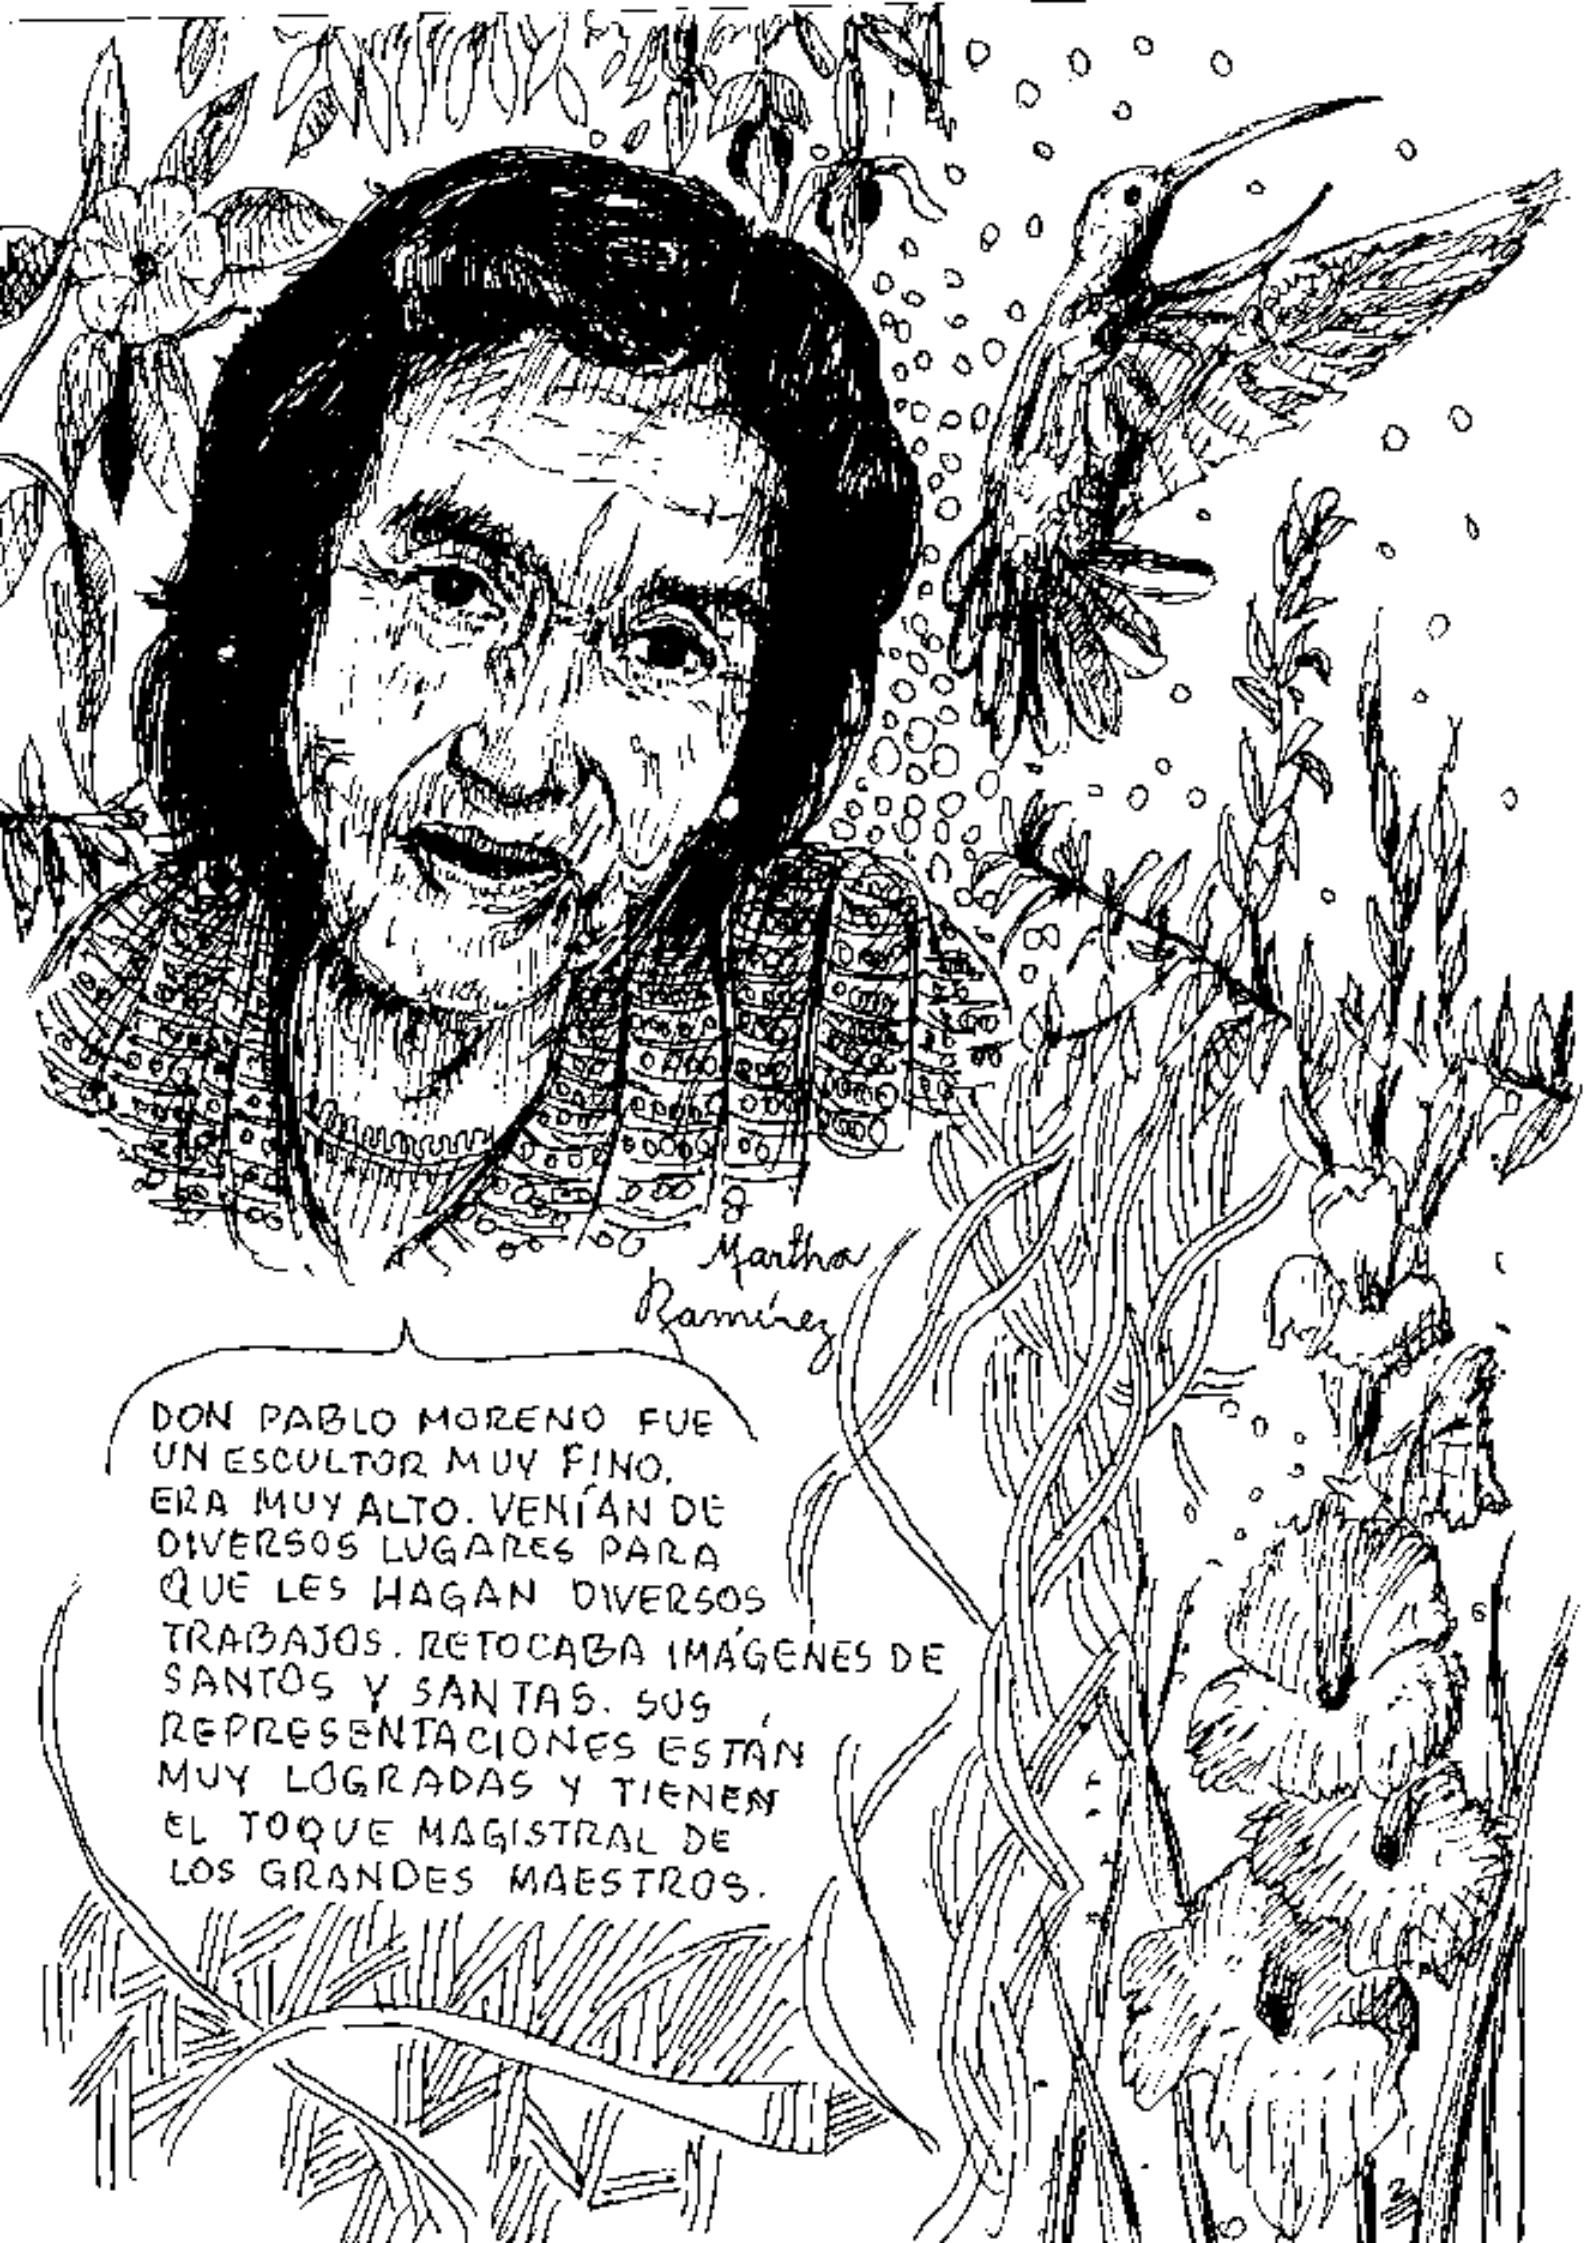 Martha
Ramírez
DON PABLO MORENO FUE
UN ESCULTOR MUY FINO.
ERA MUY ALTO. VENÍAN DE
DIVERSOS LUGARES PARA
QUE LES HAGAN DIVERSOS
TRABAJOS. RETOCABA IMÁGENES DE
SANTOS Y SANTAS. SUS
REPRESENTACIONES ESTÁN
MUY LOGRADAS Y TIENEN
EL TOQUE MAGISTRAL DE
LOS GRANDES MAESTROS.